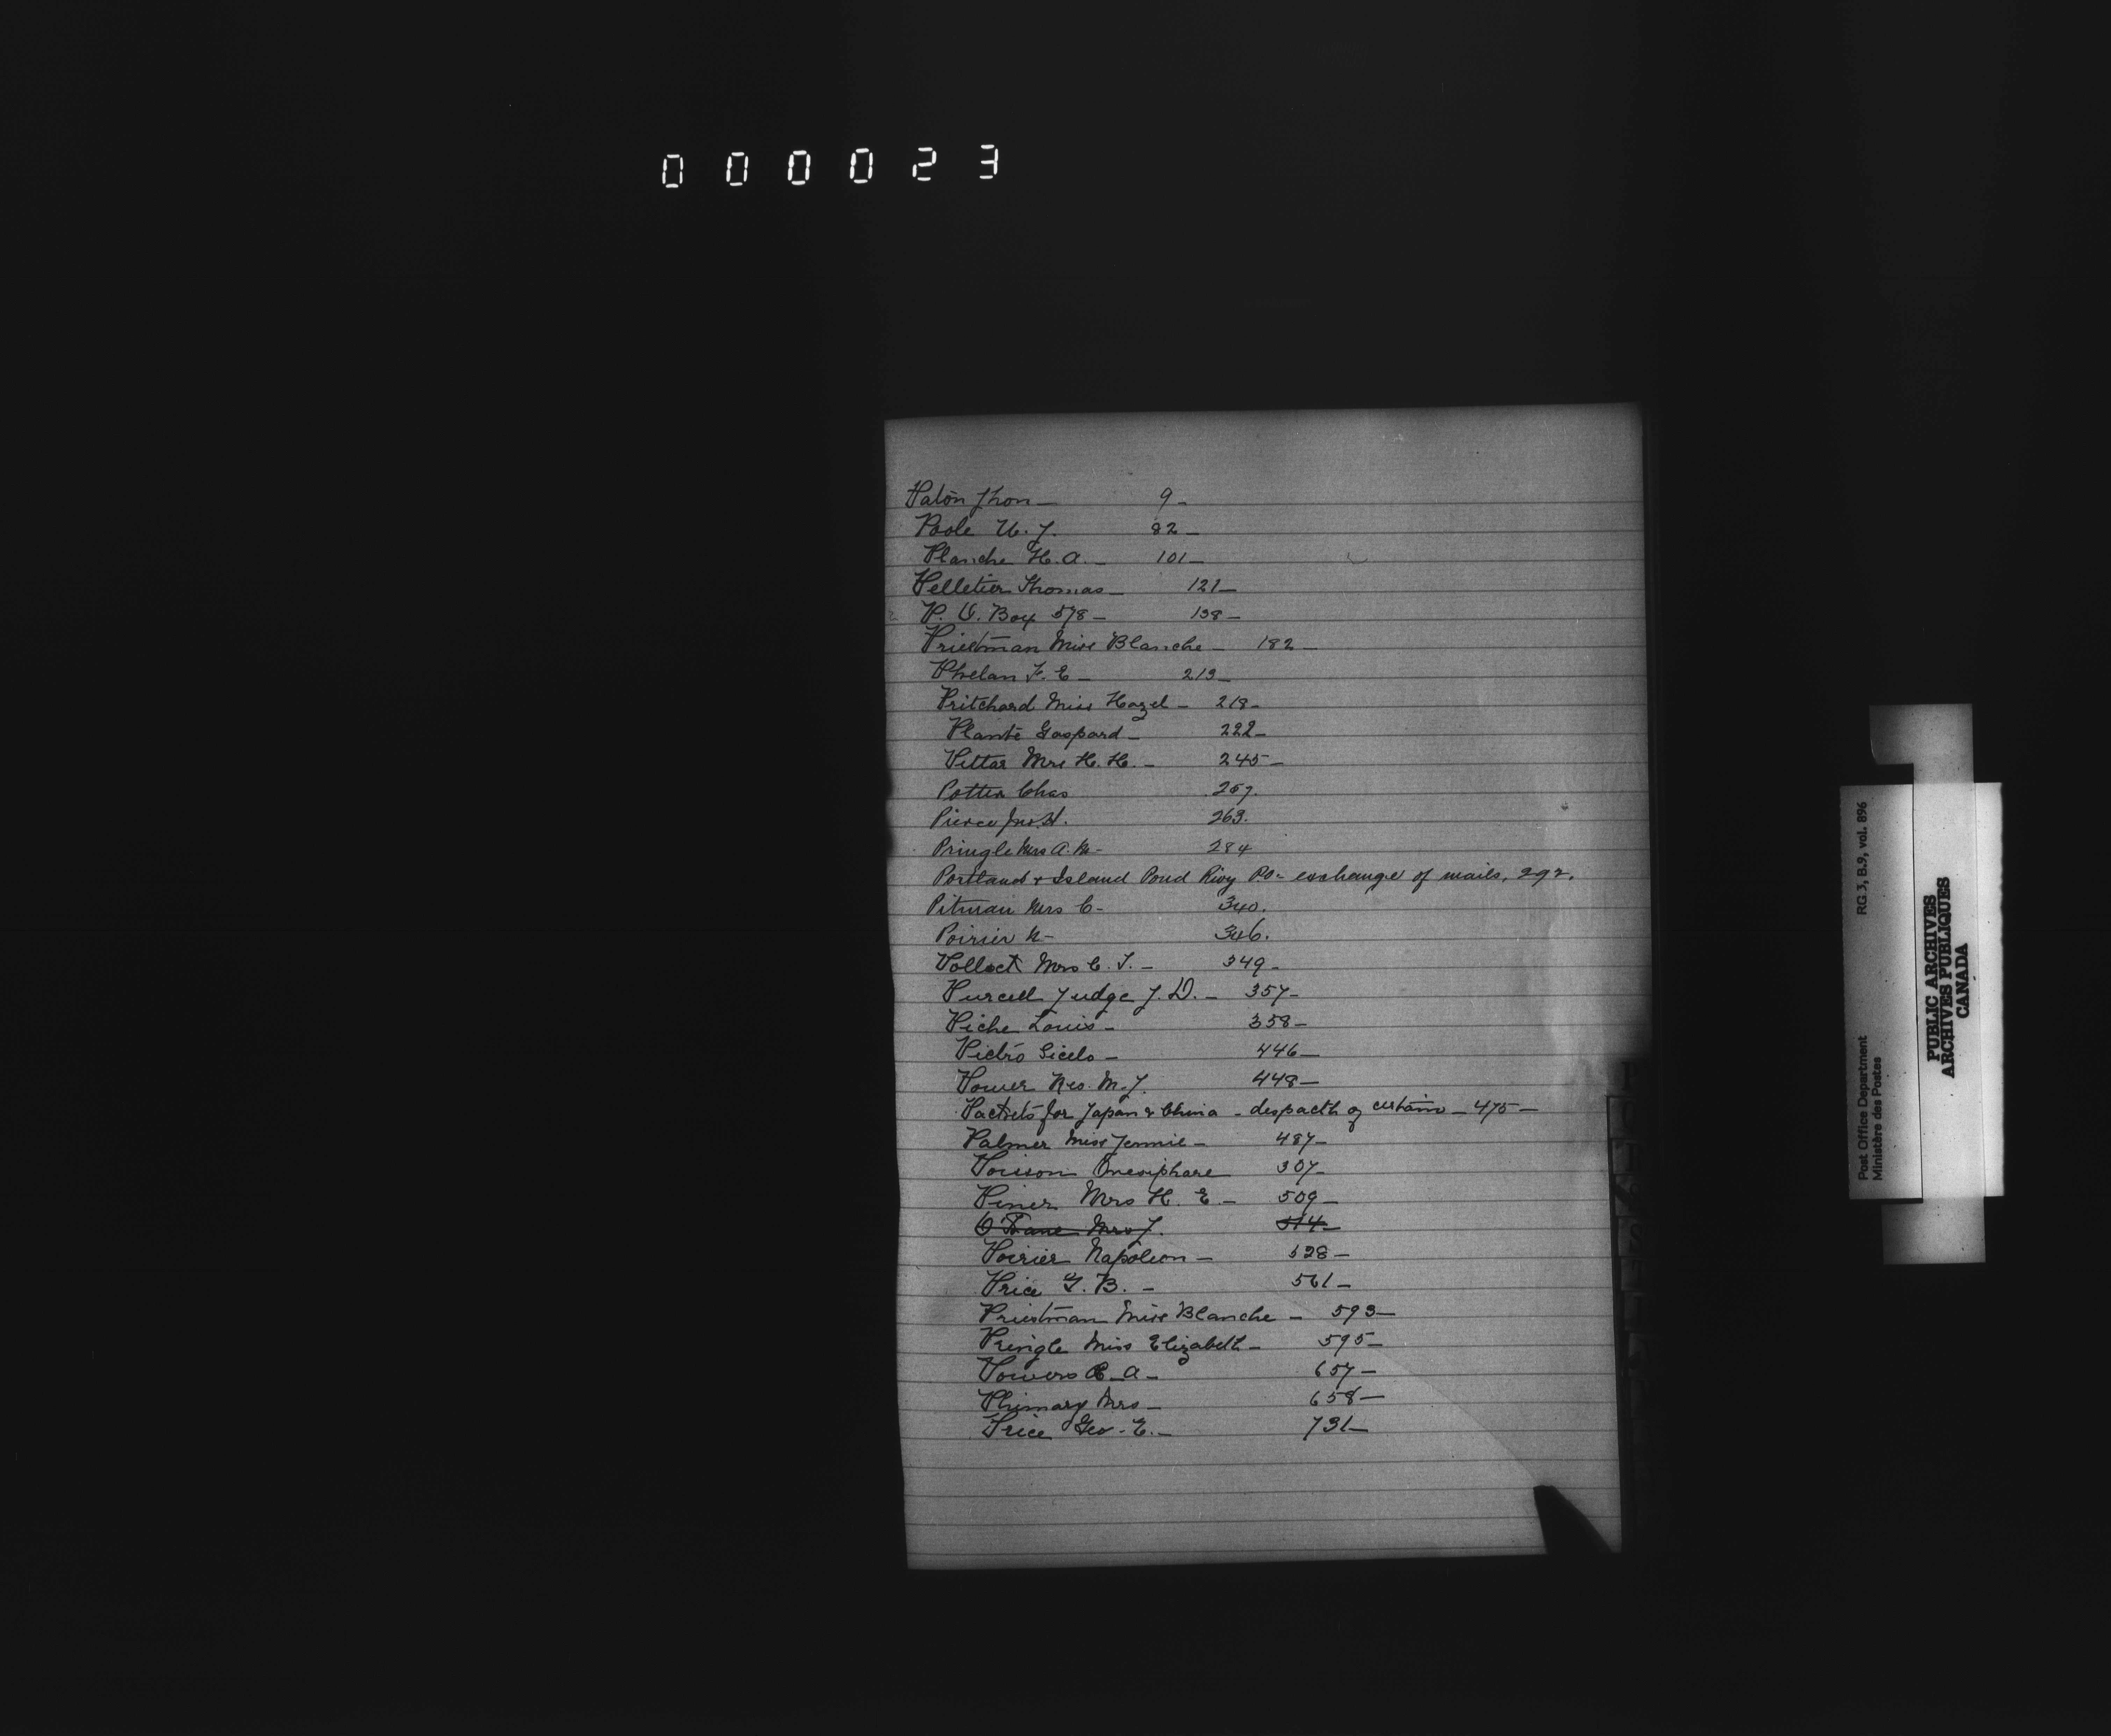 000023
Paton Jhon — 9 —
Poole W. J. 82 —
Planche H. A. — 101 —
Pelletier Thomas — 121 —
P. O. Box 578 — 138 —
Priestman Miss Blanche — 182 —
Phelan F. E — 213 —
Pritchard Miss Hazel — 218 —
Planté Gaspard — 222 —
Pittar Mrs H. H. — 245 —
Potter Chas 257.
Pierce Jno. H. 263.
Pringle Mrs A. M — 284
Portland & Island Pond Rwy P.O. — exchange of mails, 292.
Pitman Mrs C — 340.
Poirier N — 346.
Pollock Mrs C. T. — 349 —
Purcell Judge J. D. — 357 —
Piche Louis — 358 —
Pietro Sicelo — 446 —
Power M. J. 448 —
Packets for Japan & China — despacth of certain — 475 —
Palmer Miss Jennie — 487 —
Poisson Onesiphare 307 —
Piner Mrs H. E. — 509 —
Mrs J. 514 —
Poirier Napoleon — 528 —
Price G. B. — 561 —
Priestman Miss Blanche — 593 —
Pringle Miss Elizabeth — 595 —
Powers R. A — 657 —
Mrs — 658 —
Price Geo. E. — 731 —
Post Office Department
Ministère des Postes
RG 3, B.9, vol. 896
PUBLIC ARCHIVES
ARCHIVES PUBLIQUES
CANADA